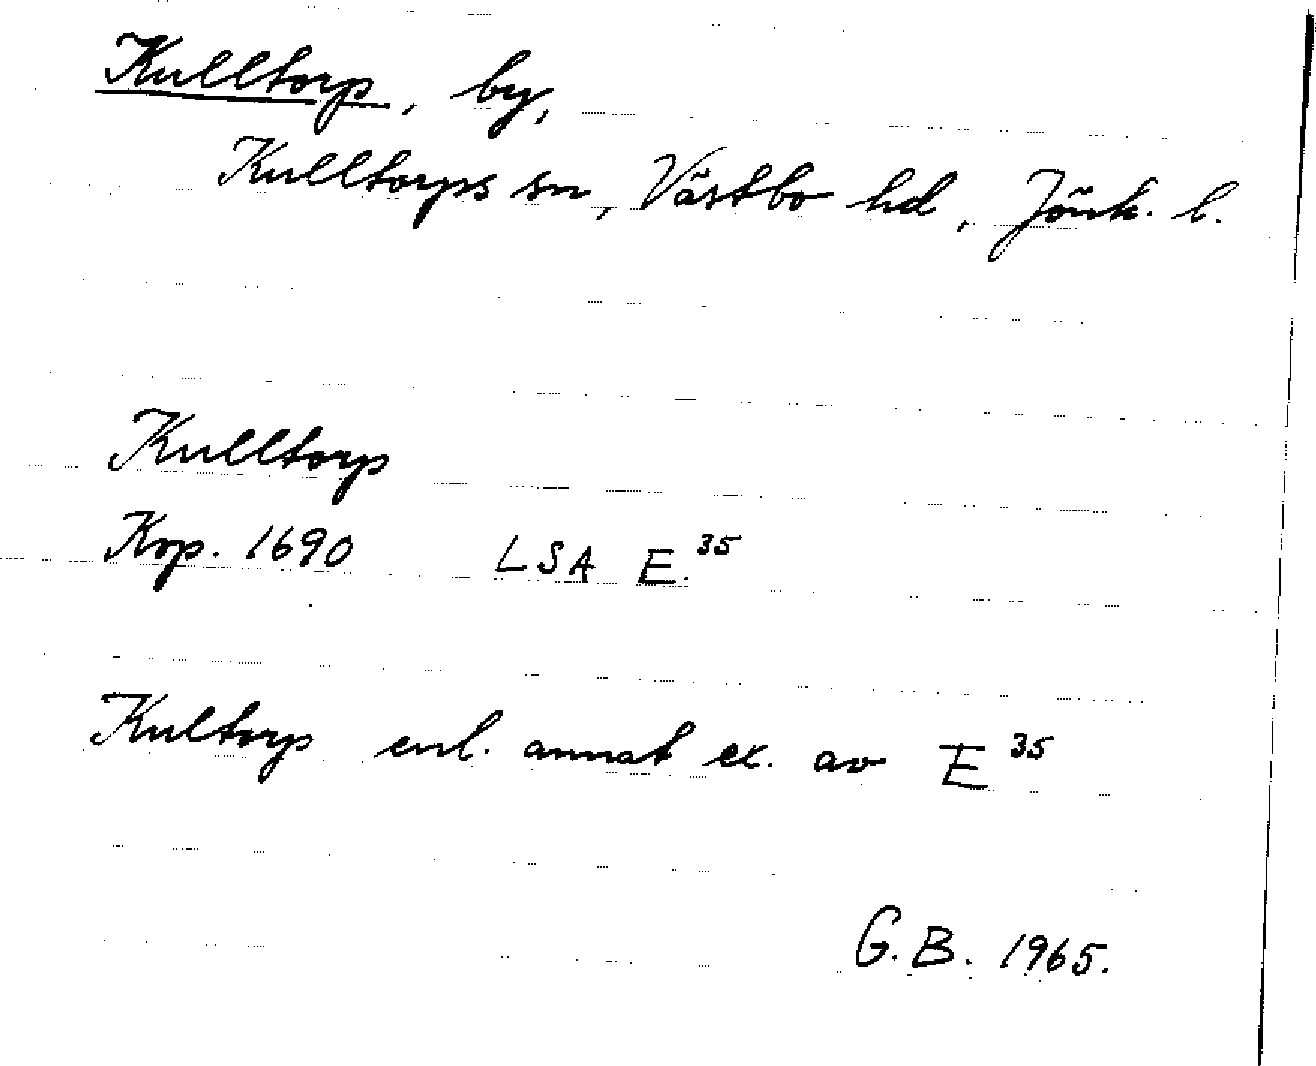 Kulltorp, by,
Kulltorps sn, Västbo hd, Jönk. l.
Kulltorp
Kop. 1690 LSA E.35
Kultorp enl. annat ex. av E 35
G.B. 1965.